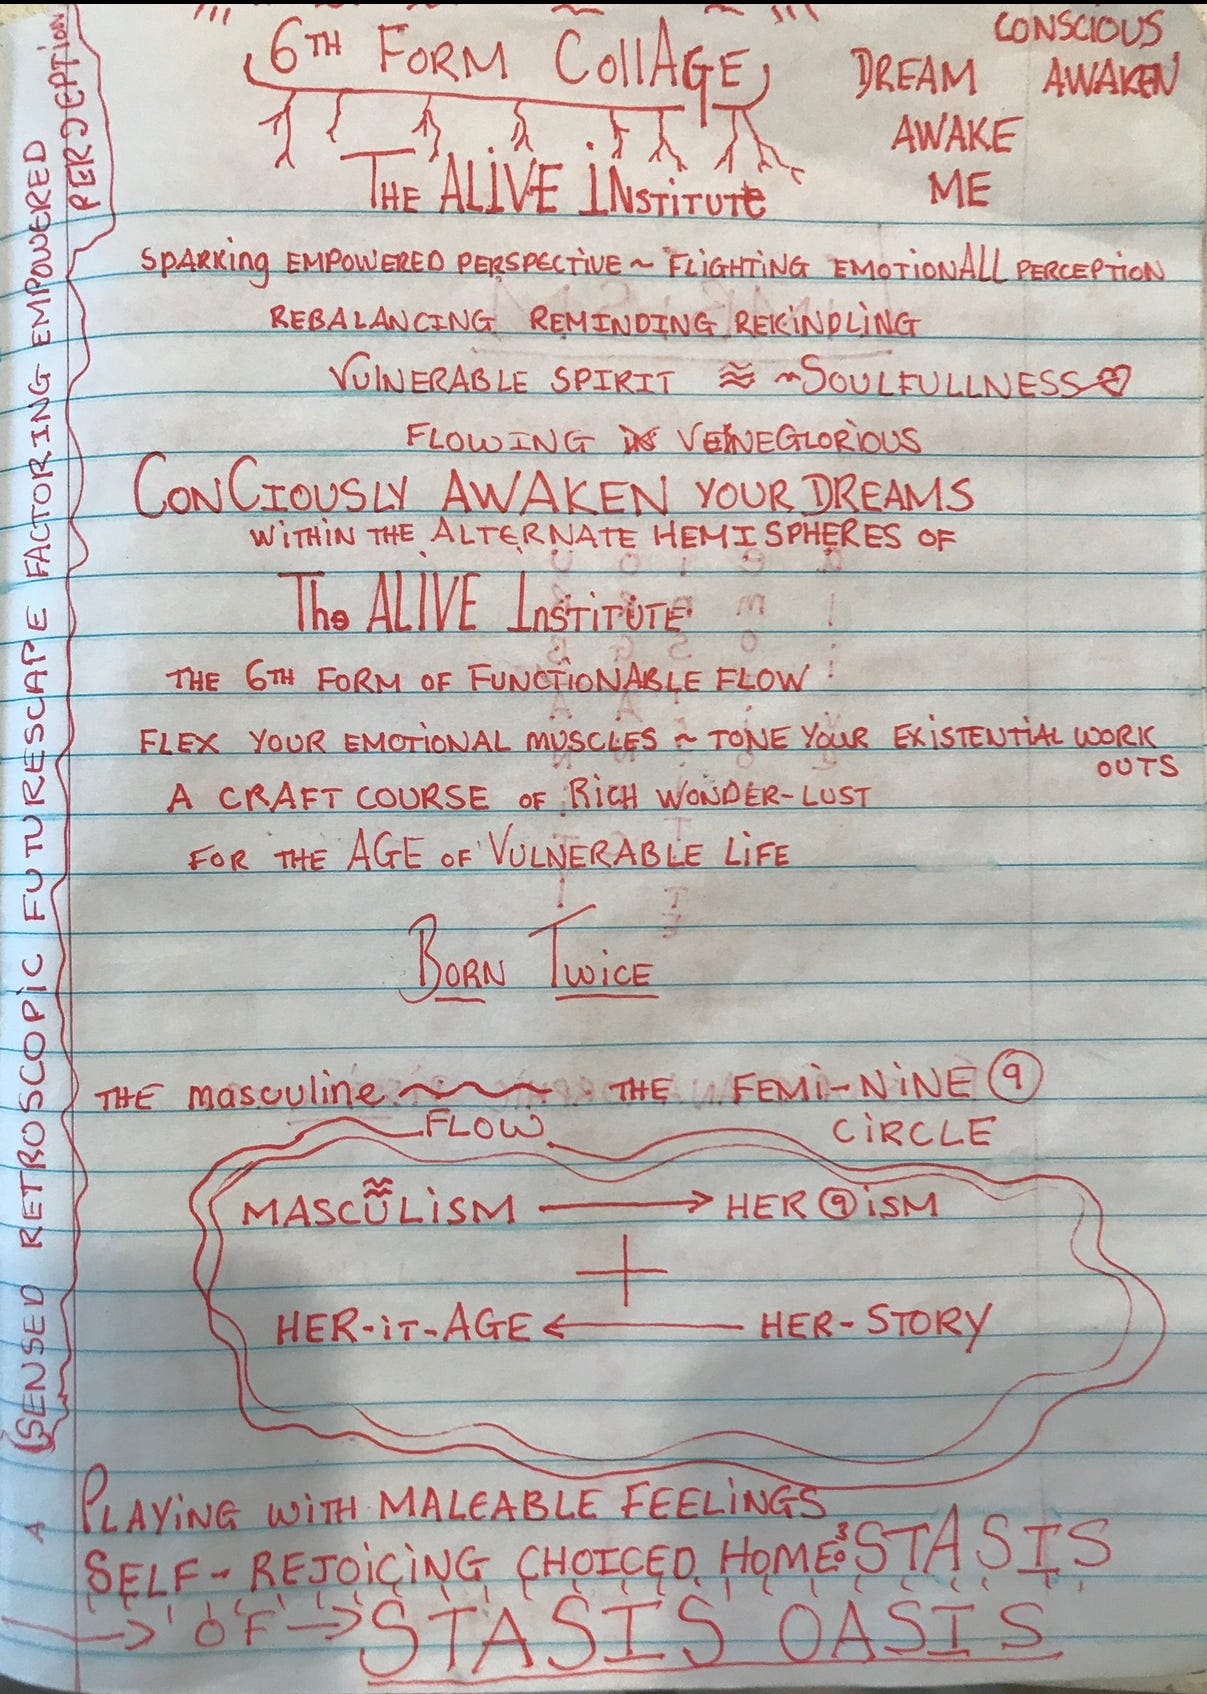 6TH FORM CollAGE
CONSCIOUS
DREAM AWAKEN
AWAKE
ME
THE ALIVE INSTITUTE
SPARKING EMPOWERED PERSPECTIVE ~ FLIGHTING EMOTIONALL PERCEPTION
REBALANCING REMINDING REKINDLING
VULNERABLE SPIRIT ≈ ~SOULFULLNESS ♡
FLOWING VEINEGLORIOUS
CONCIOUSLY AWAKEN YOUR DREAMS
WITHIN THE ALTERNATE HEMISPHERES OF
The ALIVE INSTITUTE
THE 6TH FORM OF FUNCTIONABLE FLOW
FLEX YOUR EMOTIONAL MUSCLES ~ TONE YOUR EXISTENTIAL WORK
OUTS
A CRAFT COURSE OF RICH WONDER-LUST
FOR THE AGE OF VULNERABLE LIFE
BORN TWICE
THE masculine ~~~ THE FEMI-NINE 9
FLOW CIRCLE
MASCULISM → HER 9 ISM
+
HER-IT-AGE ← HER-STORY
PLAYING WITH MALEABLE FEELINGS
SELF-REJOICING CHOICED HOMEOSTASIS
→ OF → STASIS OASIS
A SENSED RETROSCOPIC FUTURESCAPE FACTORING EMPOWERED
PERCEPTION